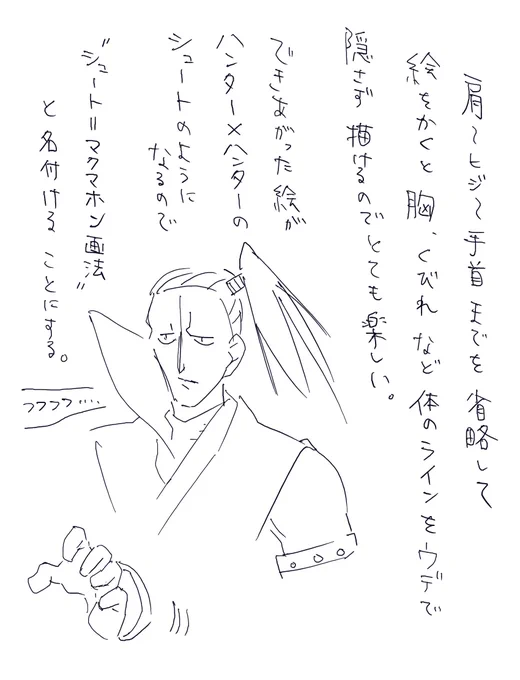 肩〜ヒジ〜手首までを省略して
絵をかくと胸、くびれなど体のラインをウデで
隠さず描けるのでとても楽しい。
できあがった絵が
ハンター×ハンターの
シュートのように
なるので
"シュート=マクマホン画法"
と名付けることにする。
フフフフ‥‥